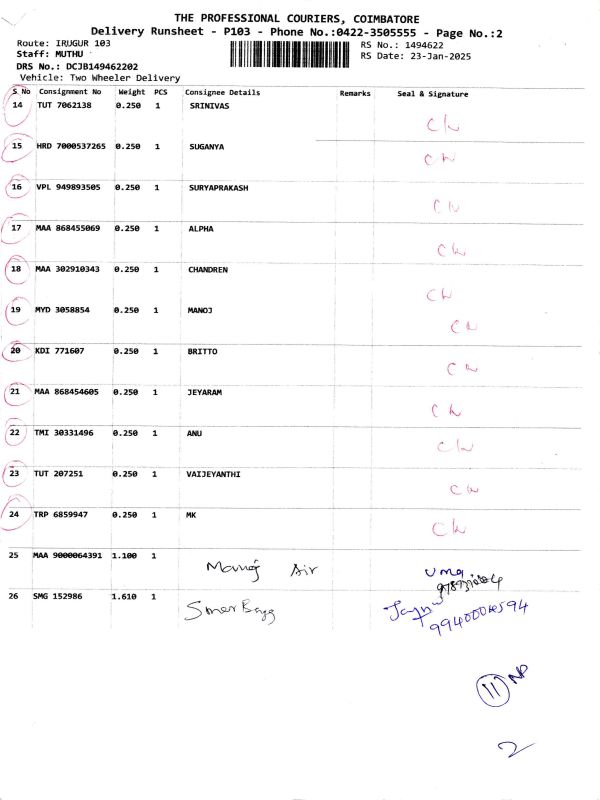 THE PROFESSIONAL COURIERS, COIMBATORE
Delivery Runsheet - P103 - Phone No.:0422-3505555 - Page No.:2
Route: IRUGUR 103 RS No.: 1494622
Staff: MUTHU RS Date: 23-Jan-2025
DRS No.: DCJB149462202
Vehicle: Two Wheeler Delivery
S No Consignment No Weight PCS Consignee Details Remarks Seal & Signature
14 TUT 7062138 0.250 1 SRINIVAS
15 HRD 7000537265 0.250 1 SUGANYA
16 VPL 949893505 0.250 1 SURYAPRAKASH
17 MAA 868455069 0.250 1 ALPHA
18 MAA 302910343 0.250 1 CHANDREN
19 MYD 3058854 0.250 1 MANOJ
20 KDI 771607 0.250 1 BRITTO
21 MAA 868454605 0.250 1 JEYARAM
22 TMI 30331496 0.250 1 ANU
23 TUT 207251 0.250 1 VAIJEYANTHI
24 TRP 6859947 0.250 1 MK
25 MAA 9000064391 1.100 1 Manoj Air Uma
26 SMG 152986 1.610 1
9940004594
11 NP
2